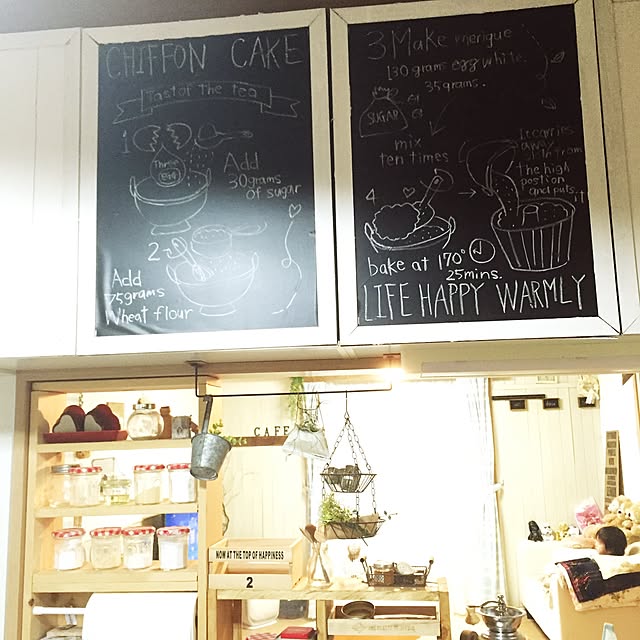 CHIFFON CAKE
Taste of the tea
1
Three
egg
Add
30grams
of sugar
2
Add
75grams
Wheat flour
3 Make merigue
130 grams egg white.
35 grams.
SUGAR
mix
ten times
It carries
away
in from
the high
postion
and puts
it
4
bake at 170°
25mins.
LIFE HAPPY WARMLY
CAFE
NOW AT THE TOP OF HAPPINESS
2